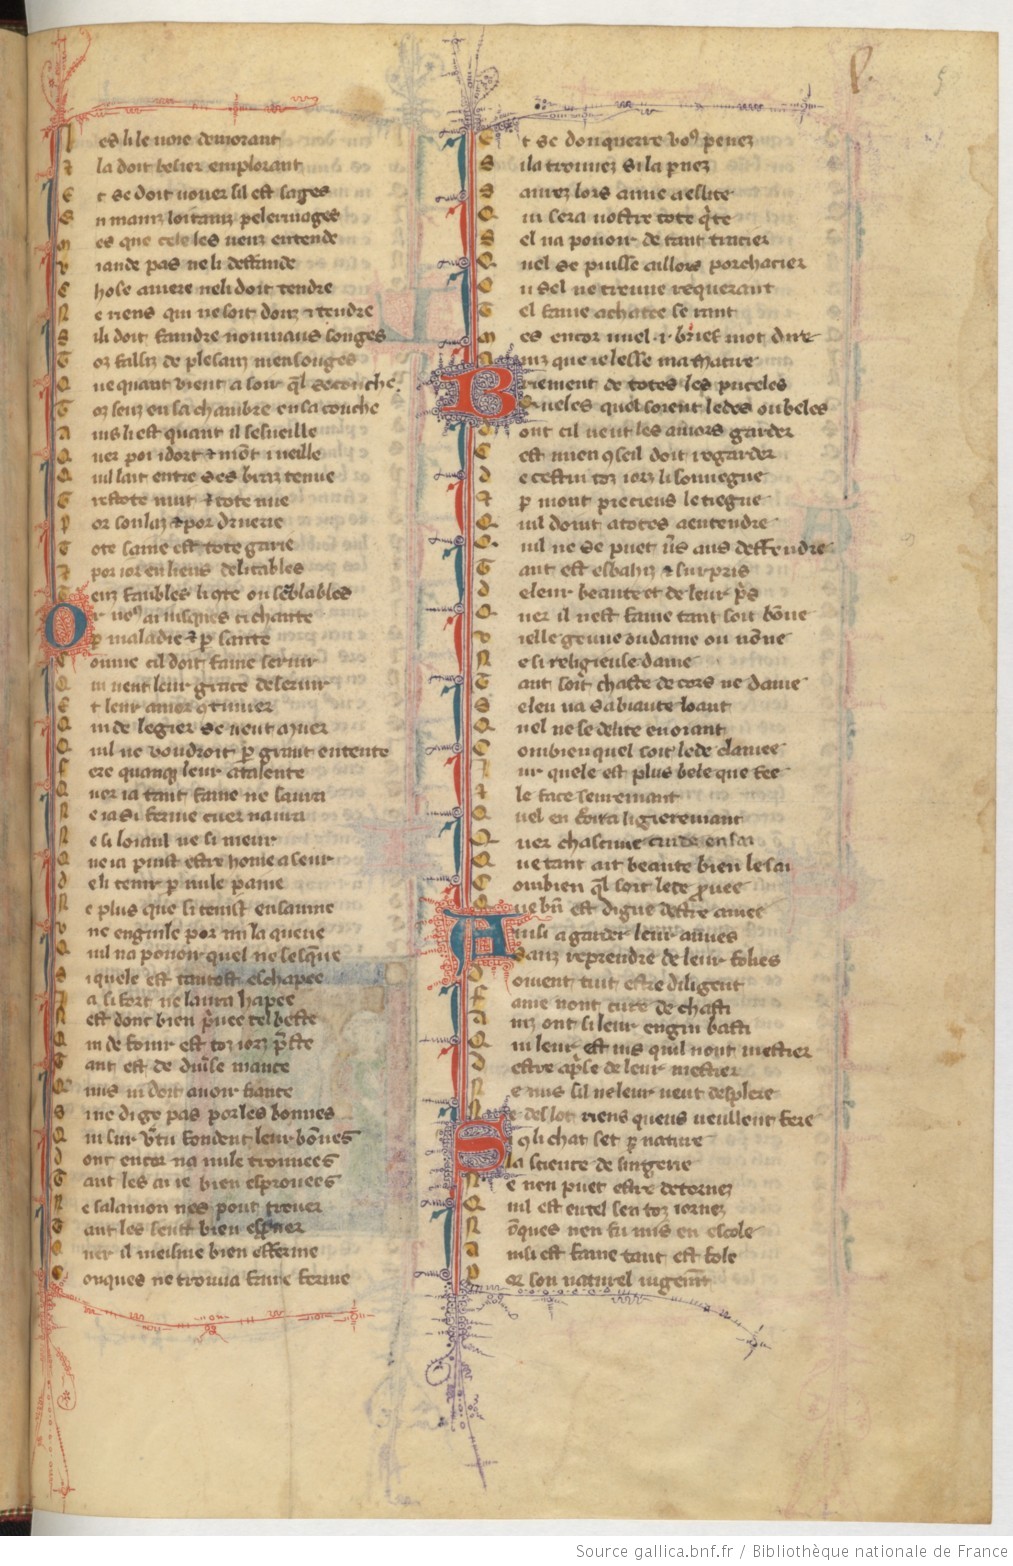 es li le voie demorant
la doit beser emplorant
t se doit vouer sil est sages
n mainz loitainz pelerinages
es que cele les veuz entende
iande pas ne li deffande
hose amere ne li doit tendre
e riens qui ne soit douz & tendre
ili doit faindre nouviaus songes
oz falliz de plesanz mensonges
ue quant vient a soir ql̃ se couche
oz seuz en sa chambre en sa couche
vis li est quant il sesueille
ar poi i dort & mõt i veille
uil lait entre ses braz tenue
restote nuit & tote nue
or soulaz & por druerie
ote saine est tote garie
por ior en liens delitables
euz faubles li ote ou sẽblables
r vo9 ai iusques ci chante
p̱ maladie & p̱ sante
oume cil doit fame servir
ui veut leur grace deservir
t leur amor 9tinuer
ui de legier se veut muer
uil ne voudroit p̱ grant entente
ere quanq̃ leur atalente
uer ia tant fame ne savra
e ia si ferme cuer navra
e si loiaul ne si meur
ue ia puist estre home aseur
e li tenir p̱ nule paine
e plus que si tenist en saine
ne enguile por mi la queue
uil na pooir quel ne sesqueue
iquele est tantost eschapee
a si fort ne laura hapee
est donc bien p̃vee tel beste
ui de fouir est toz iorz p̃ste
ant est de diũse muance
nus ni doit avoir fiance
i ne di ge pas por les bonnes
ui sur v̾tu fondent leur bõnes
ont encor na nule trouuees
ant les aie bien esprouees
e salamon nes pout trover
ant les seust bien esprover
uer il meisme bien afferme
onques ne trouva fame ferme
t se don querre vo9 penez
ila trouuez si la pnez
aurez lors amie a eslite
ui sera vostre tote q̾te
el na pooir de tant tracier
uel se puisse aillors porchacier
u sel ne treuve requerant
el fame achaste se rant
es encor vuel .i. brief mot dire
inz que ie lesse ma matire
riement de totes les puceles
Queles quel soient ledes ou beles
ont cil veut les amors garder
est mien 9seil doit regarder
e cestui toz iorz li souviegne
p̱ mout precieus le tiegne
uil doint a totes a entendre
uil ne se puet ũs aus deffendre
ant est esbahiz & surpris
e leur beaute et de leur p̾s
uer il nest fame tant soit bõne
ielle genne ou dame ou nõne
e si religieuse dame
ant soit chaste de cors ne dame
sen va sa biaute loant
uel ne se delite en oiant
ombien quel soit lede clamee
ur quele est plus bele que fee
le face seurement
uel en croira ligierement
uer chascune cuide en sai
ue tant ait beaute bien le sai
ombien ql̃ soit lede pro̱vee
ue bñ est digne destre amee
insi a garder leur amies
Sanz reprendre de leur folies
oivent tuit estre diligent
ame nont cure de chasti
inz ont si leur engin basti
ui leur est vis quil nont mestier
estre ap̾se de leur mestier
e nus sil ne leur veut desplere
e deslot riens queus veullent fere
i 9 li chat set p̱ nature
la science de surgerie
e nen puet estre detornez
uil est en tel sen toz iornez
õques nen fu mis en escole
insi est fame tant est fole
or son naturel iugemẽt